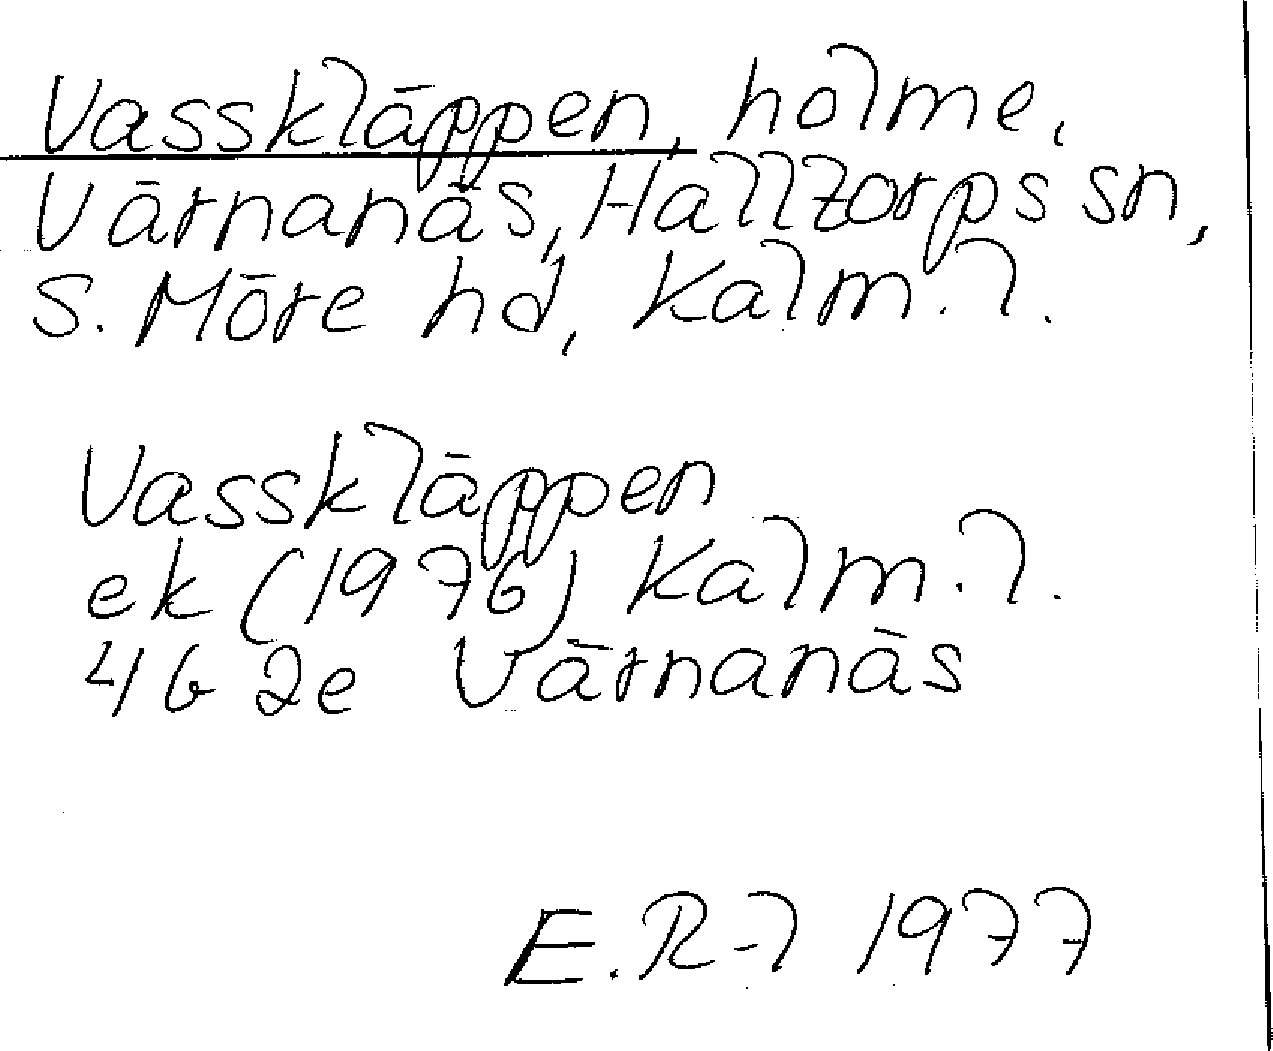 Vasskläppen, holme,
Värnanäs, Halltorps sn,
S. Möre hd, Kalm. l.
Vasskläppen
ek (1976) Kalm. l.
4G 2e Värnanäs
E. R-l 1977